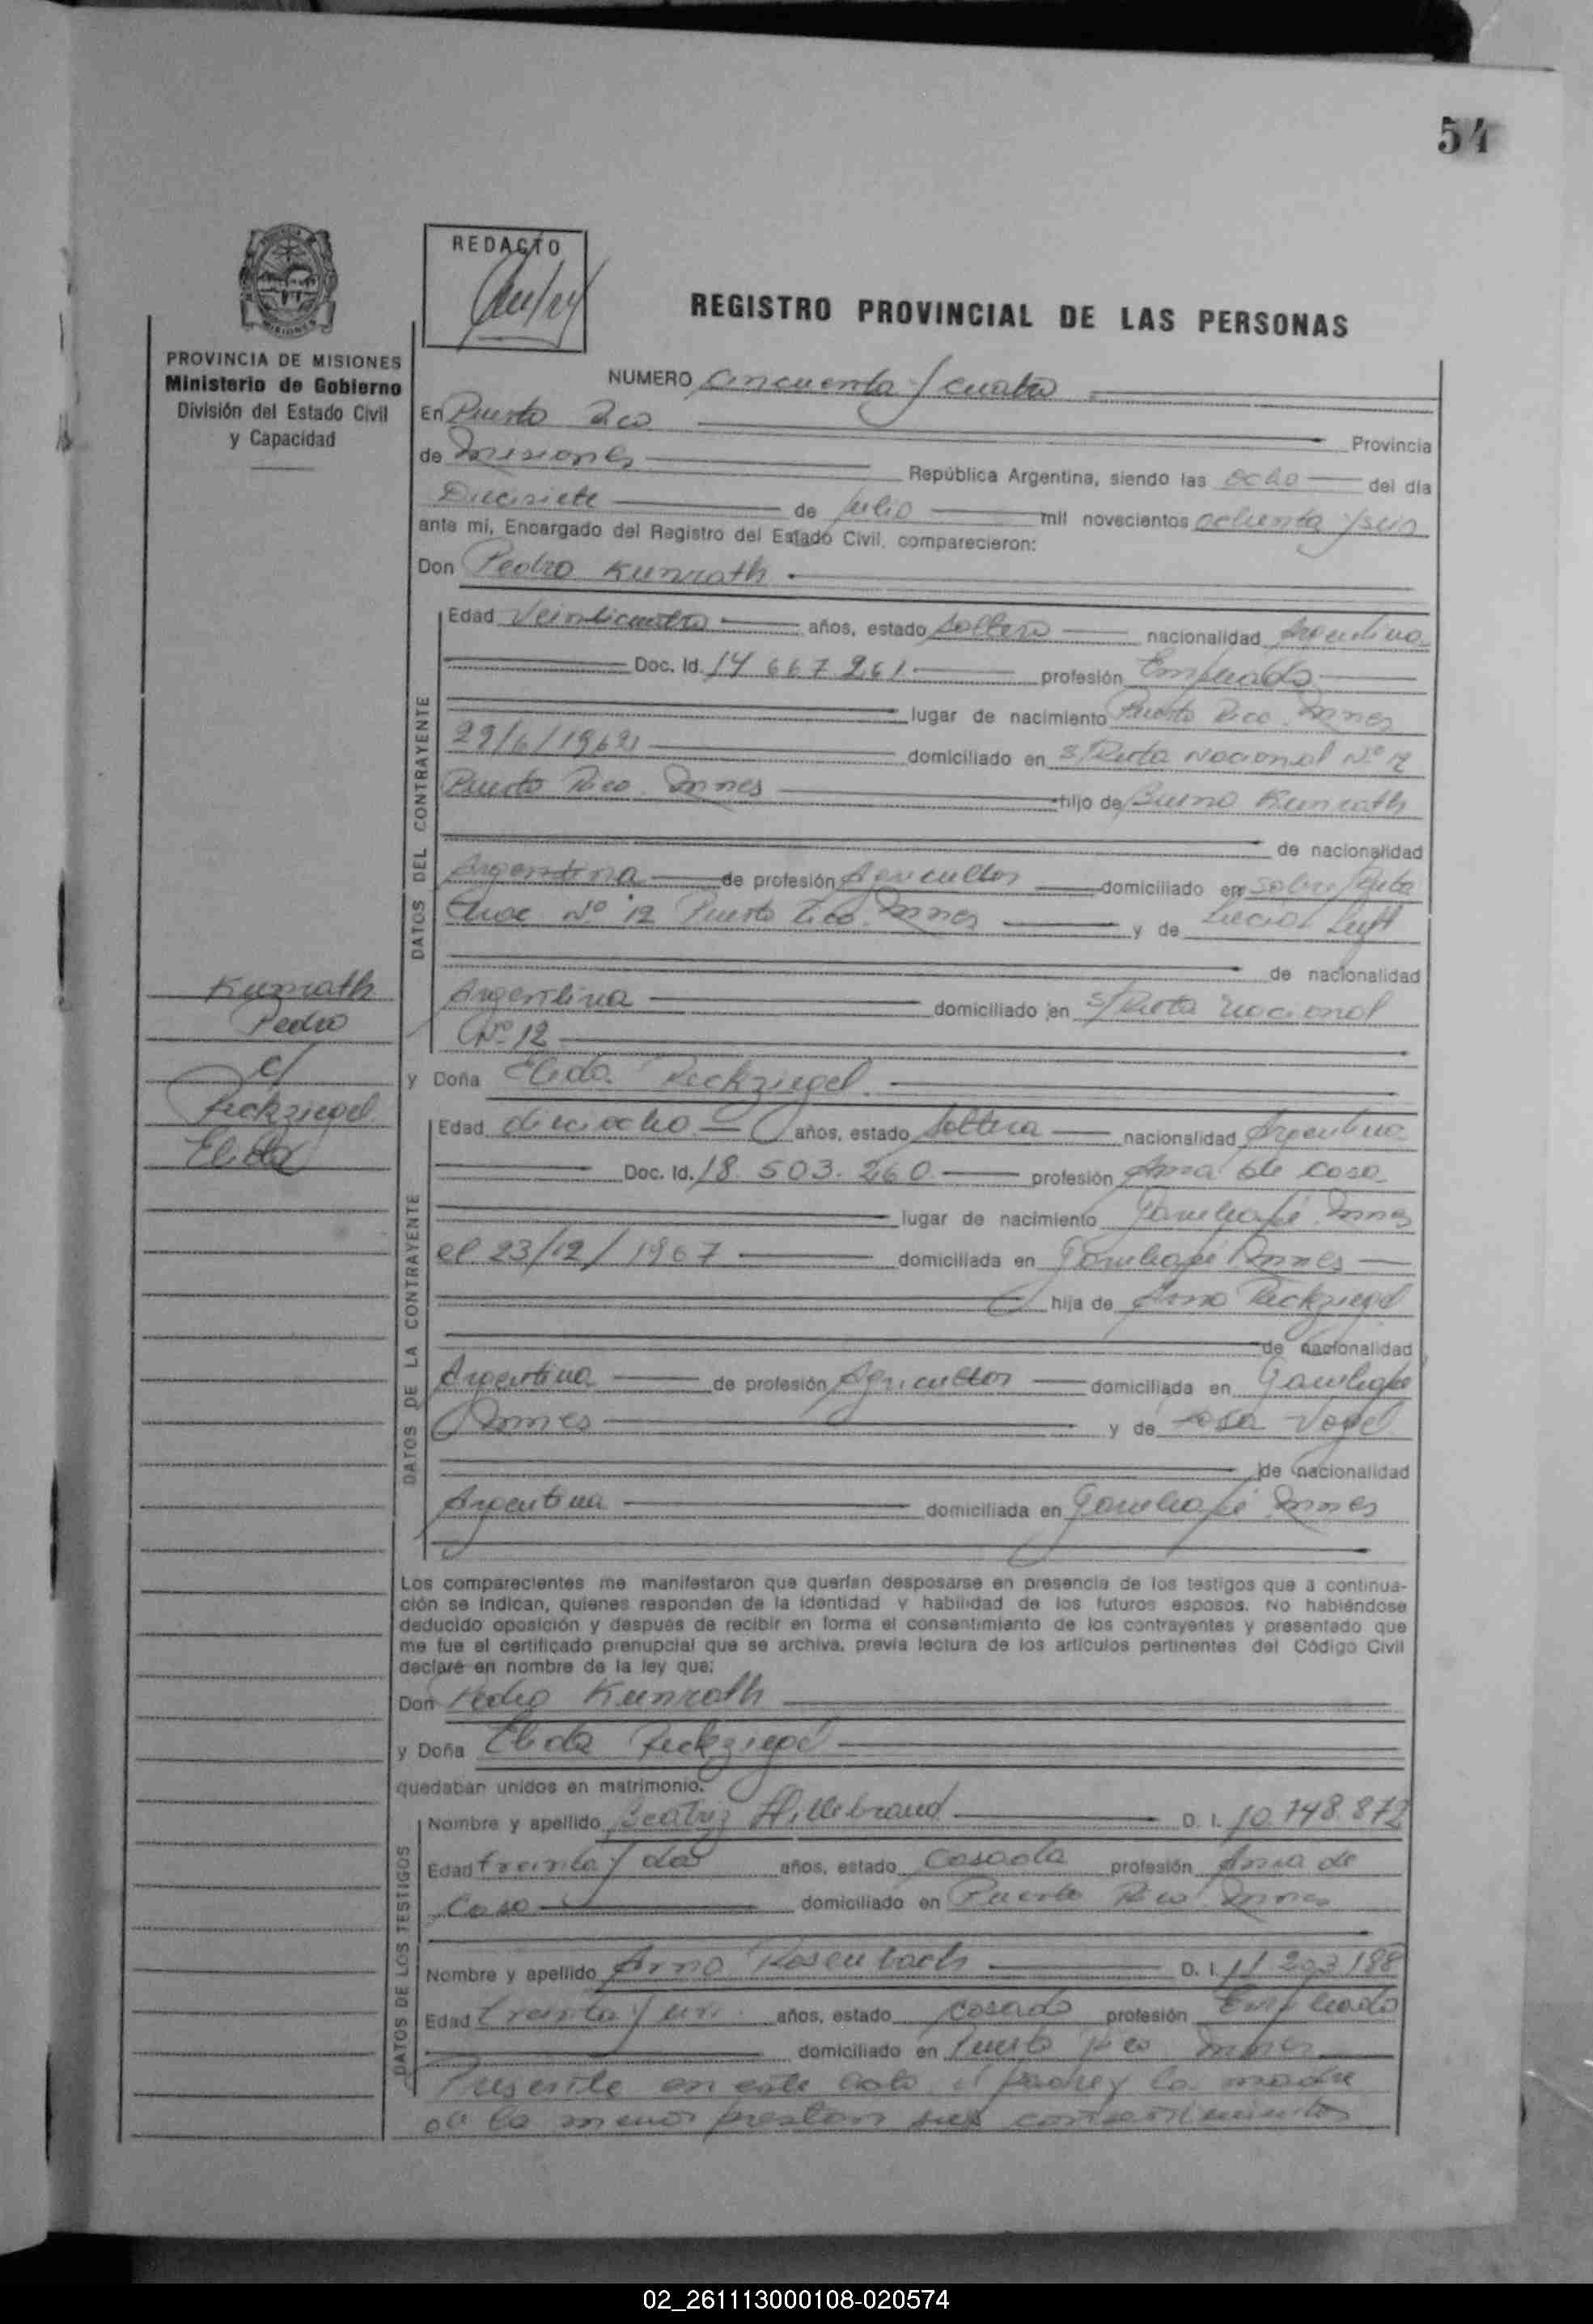 54
REDACTO
REGISTRO PROVINCIAL DE LAS PERSONAS
PROVINCIA DE MISIONES
Ministerio de Gobierno
División del Estado Civil
y Capacidad
NUMERO Cincuenta y cuatro
En Puerto Rico Provincia
de Misiones República Argentina, siendo las ocho del día
Diecisiete de Julio mil novecientos ochenta y seis
ante mi, Encargado del Registro del Estado Civil, comparecieron:
Don Pedro Kunrath
DATOS DEL CONTRAYENTE
Edad Veinticuatro años, estado soltero nacionalidad Argentina
Doc. Id. 14 667 261 profesión Empleado
lugar de nacimiento Puerto Rico Mnes
29/6/1962 domiciliado en s/Ruta Nacional Nº 12
Puerto Rico Mnes hijo de Bruno Kunrath
de nacionalidad
Argentina de profesión Agricultor domiciliado en sobre Ruta
Nº 12 Puerto Rico Mnes y de Lucia Luft
de nacionalidad
Argentina domiciliado en s/Ruta Nacional
Nº 12
Kunrath
Pedro
c/
Reckziegel
Elida
y Doña Elida Reckziegel
DATOS DE LA CONTRAYENTE
Edad dieciocho años, estado soltera nacionalidad Argentina
Doc. Id. 18.503.260 profesión Ama de casa
lugar de nacimiento Garuhapé Mnes
el 23/12/1967 domiciliada en Garuhapé Mnes
hija de Arno Reckziegel
de nacionalidad
Argentina de profesión Agricultor domiciliada en Garuhapé
Mnes y de Rosa Vogel
de nacionalidad
Argentina domiciliada en Garuhapé Mnes
Los comparecientes me manifestaron que querían desposarse en presencia de los testigos que a continua-
ción se indican, quienes responden de la identidad y habilidad de los futuros esposos. No habiéndose
deducido oposición y después de recibir en forma el consentimiento de los contrayentes y presentado que
me fue el certificado prenupcial que se archiva, previa lectura de los artículos pertinentes del Código Civil
declaré en nombre de la ley que:
Don Pedro Kunrath
y Doña Elida Reckziegel
quedaban unidos en matrimonio.
DATOS DE LOS TESTIGOS
Nombre y apellido Beatriz Hillebrand D. I. 10.748.872
Edad treinta y dos años, estado Casada profesión Ama de
Casa domiciliado en Puerto Rico Mnes
Nombre y apellido Arno Rosenbach D. I. 11 203 188
Edad treinta y un años, estado casado profesión Empleado
domiciliado en Puerto Rico Mnes
Presente en este acto el padre y la madre
de la menor prestan sus consentimientos
02_261113000108-020574